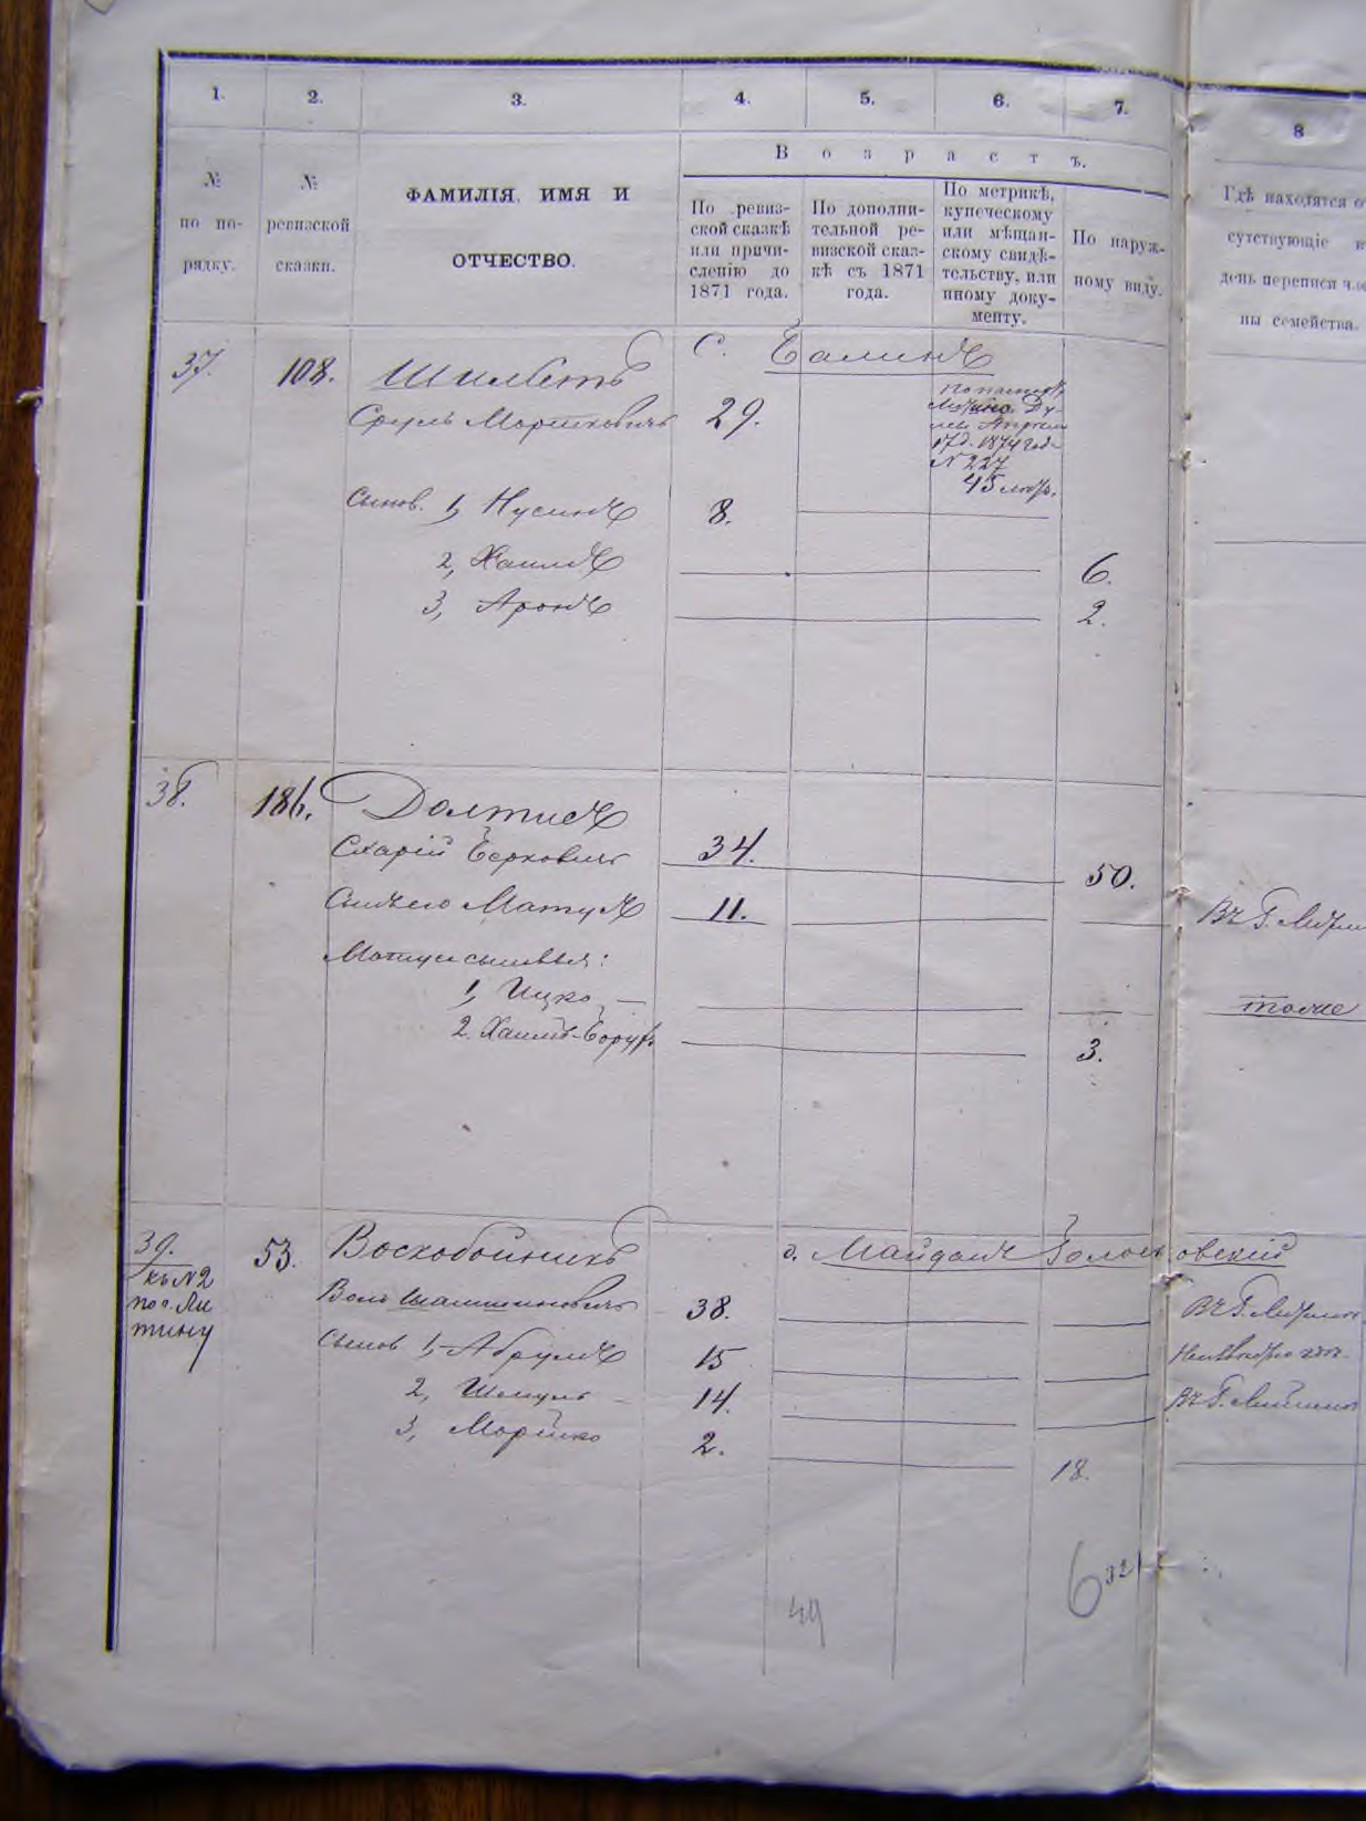 1. 2. 3. 4. 5. 6. 7. 8
№ по по-рядку.
№ ревизской сказки.
ФАМИЛІЯ, ИМЯ И
ОТЧЕСТВО.
Возрастъ.
По ревиз-
ской сказкѣ
или причи-
сленію до
1871 года.
По дополни-
тельной ре-
визской сказ-
кѣ съ 1871
года.
По метрикѣ,
купеческому
или мѣщан-
скому свидѣ-
тельству, или
иному доку-
менту.
По наруж-
ному виду.
Гдѣ находятся о
сутствующіе в
день переписи чле
ны семейства.
С. Балинъ
37. 108. Шмилетъ
Сруль Мошковичъ 29.
17 д. 1874 года
№ 227
45 лѣтъ.
Сынов. 1, Нусинъ 8.
2, Хаимъ 6.
3, Аронъ 2.
38. 186. Долтисъ
Берковичъ 34. 50.
Мотуль 11. Въ Г.
Мотуля сыновья:
1, Ицко тоже
2. Хаимъ-Борухъ 3.
д. Майданъ Голосковскій
39. 53. Воскобойникъ
къ №2
по г. Ли
тину
Волъ Шамшиновичъ 38. Въ Г.
Сынов 1, Абрумъ 15
2, Шмуль 14. Въ Г.
3, Мошко 2. 18.
49
6